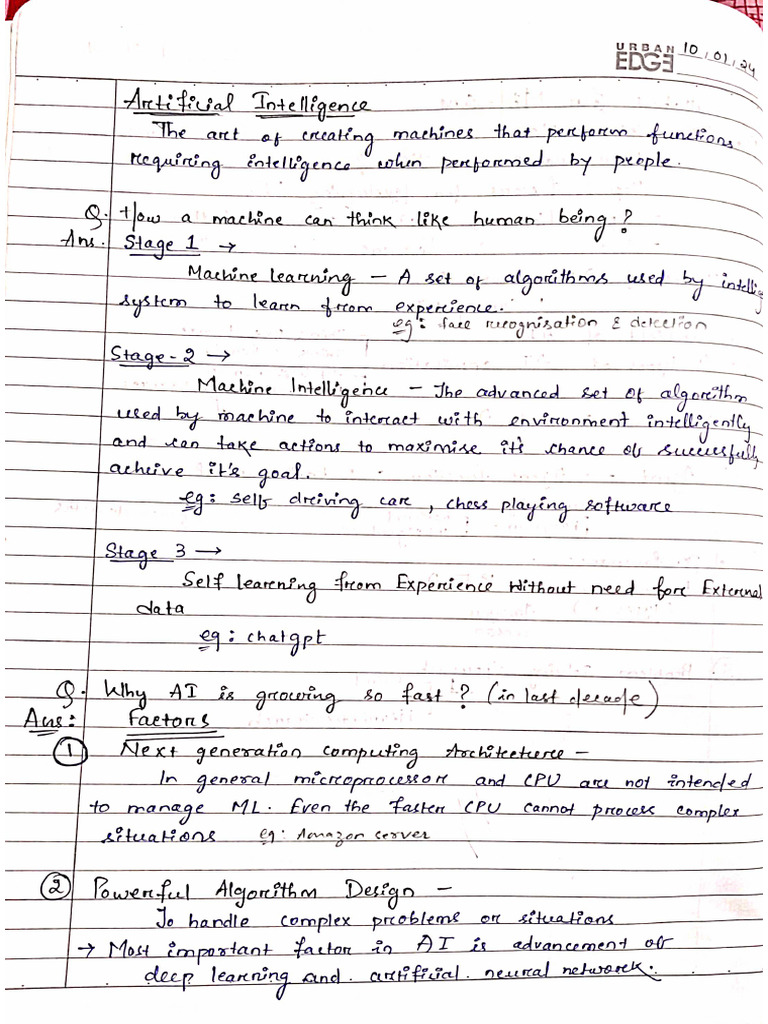 URBAN
EDGE 10/01/24
Artificial Intelligence
The art of creating machines that perform functions
requiring intelligence when performed by people.
Q. How a machine can think like human being?
Ans. Stage 1 →
Machine Learning – A set of algorithms used by intellig
system to learn from experience.
eg: face recognisation & detection
Stage-2 →
Machine Intelligence – The advanced set of algorithm
used by machine to interact with environment intelligently
and can take actions to maximise it's chance of successfully
acheive it's goal.
eg: self driving care, chess playing software
Stage 3 →
Self learning from Experience Without need for External
data
eg: chatgpt
Q. Why AI is growing so fast? (in last decade)
Ans: Factors
① Next generation computing Architecture –
In general microprocessor and CPU are not intended
to manage ML. Even the faster CPU cannot process complex
situations eg: Amazon server
② Powerful Algorithm Design –
To handle complex problems or situations
→ Most important factor in AI is advancement of
deep learning and. artificial. neural network.